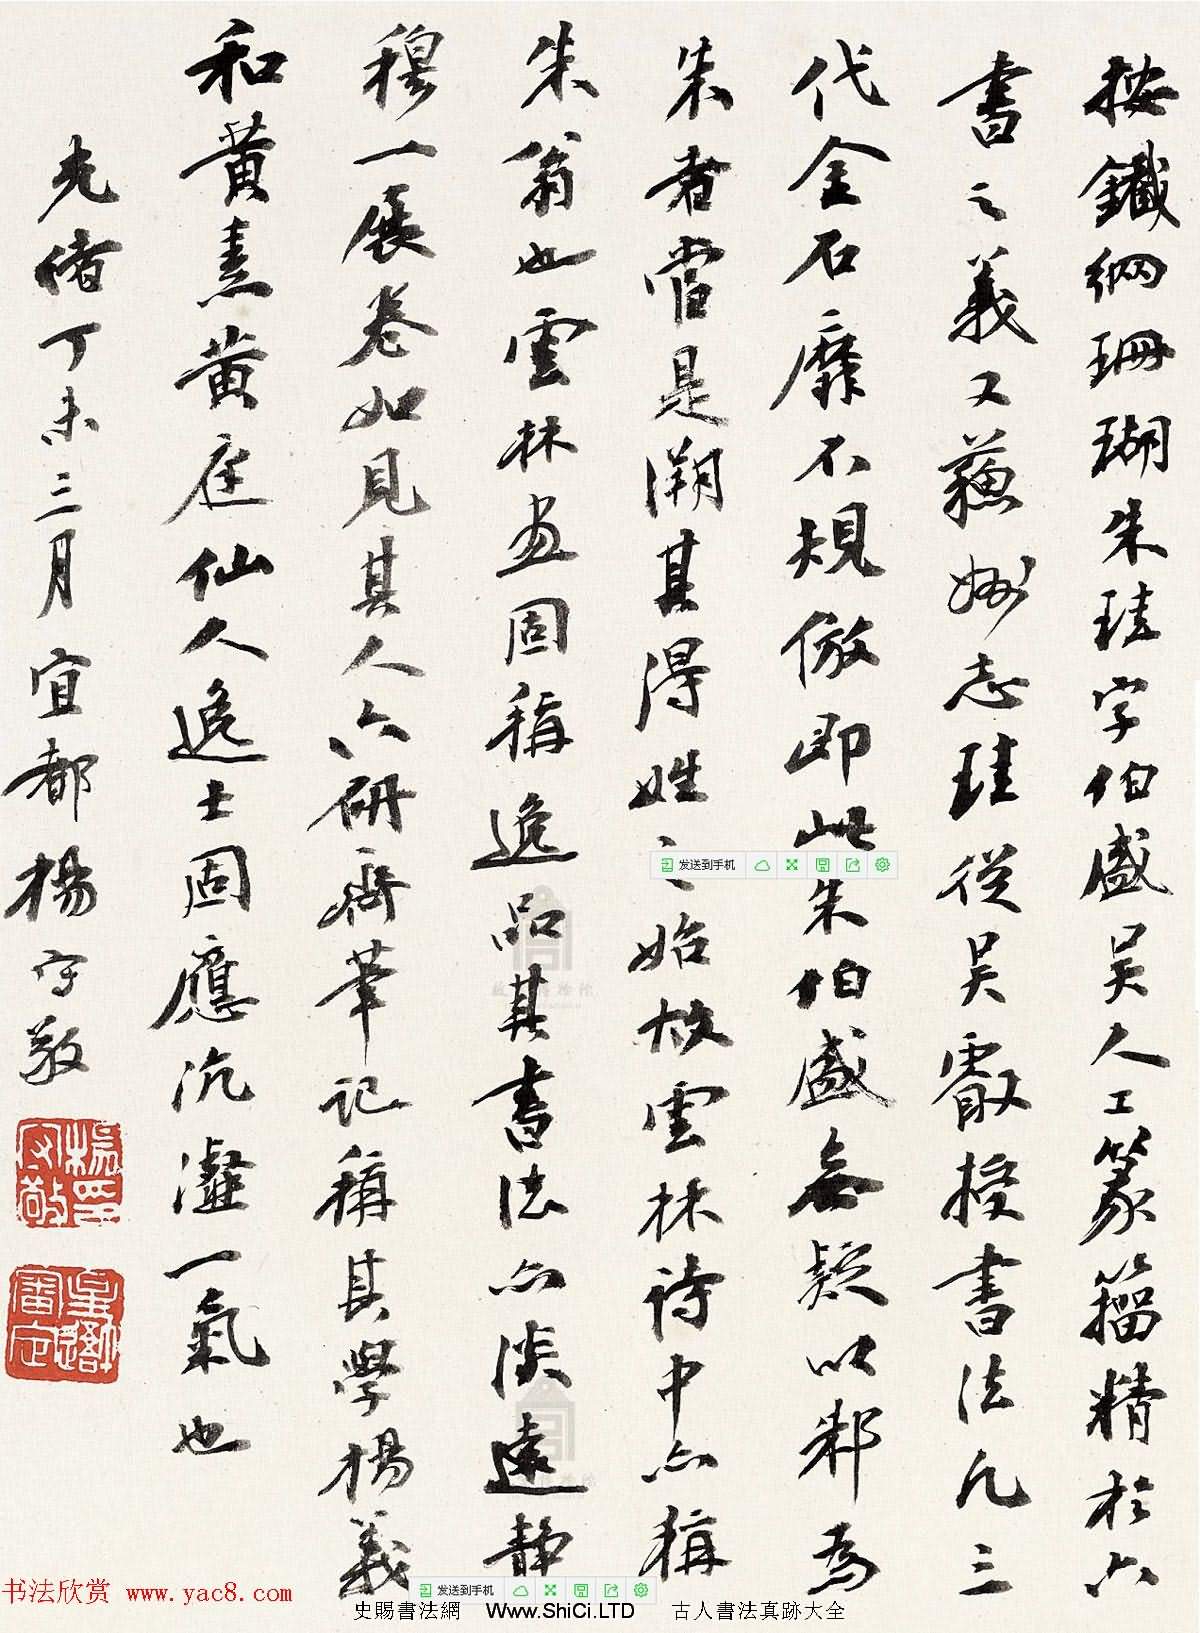 按鐵網珊瑚朱珪字伯盛吳人工篆籀精於六
書之義又蘇州志珪從吳叡授書法凡三
代金石靡不規倣即此朱伯盛無疑以邾為
朱者當是溯其得姓之始故雲林詩中亦稱
朱翁也雲林畫固稱逸品其書法亦淡遠靜
穆一展卷如見其人六研齋筆記稱其學楊羲
和黃素黃庭仙人逸士固應沆瀣一氣也
光緒丁未三月宜都楊守敬
楊守敬印
星吾審定
发送到手机
发送到手机
书法欣赏 www.yac8.com
史賜書法網 Www.ShiCi.LTD 古人書法真跡大全